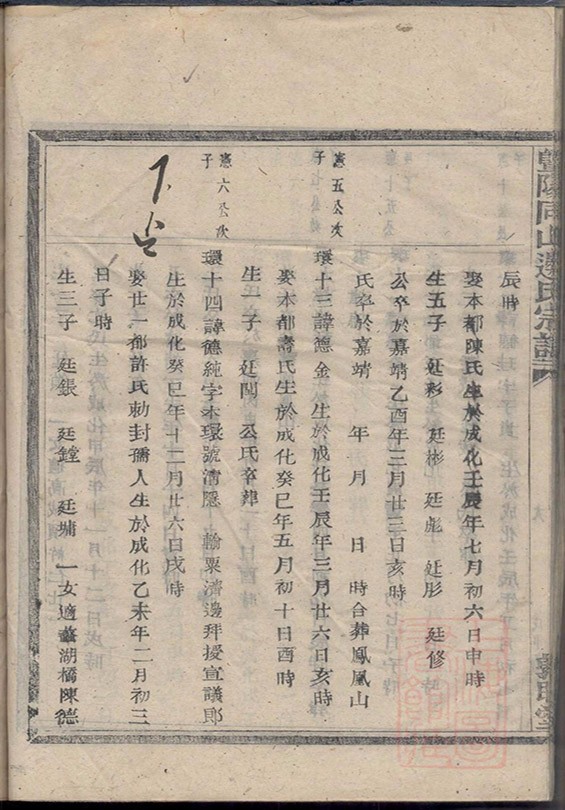 暨陽同山邊氏宗譜
辰時
娶本都陳氏生於成化壬辰年七月初六日申時
生五子 廷彩 廷彬 廷彪 廷彤 廷修
公卒於嘉靖乙酉年三月廿三日亥時
氏卒於嘉靖 年 月 日 時合葬鳳凰山
憲五公次子
環十三諱德金 生於成化壬辰年三月廿六日亥時
娶本都壽氏生於成化癸巳年五月初十日酉時
生一子 廷閗 公氏卒葬
憲六公次子
環十四諱德純字本環號清隱 輸粟濟邊拜授宣議郎
生於成化癸巳年十二月廿六日戌時
娶廿一都許氏勅封孺人生於成化乙未年二月初三
日子時
生三子 廷鋹 廷鏜 廷埔 一女適 湖橋陳德